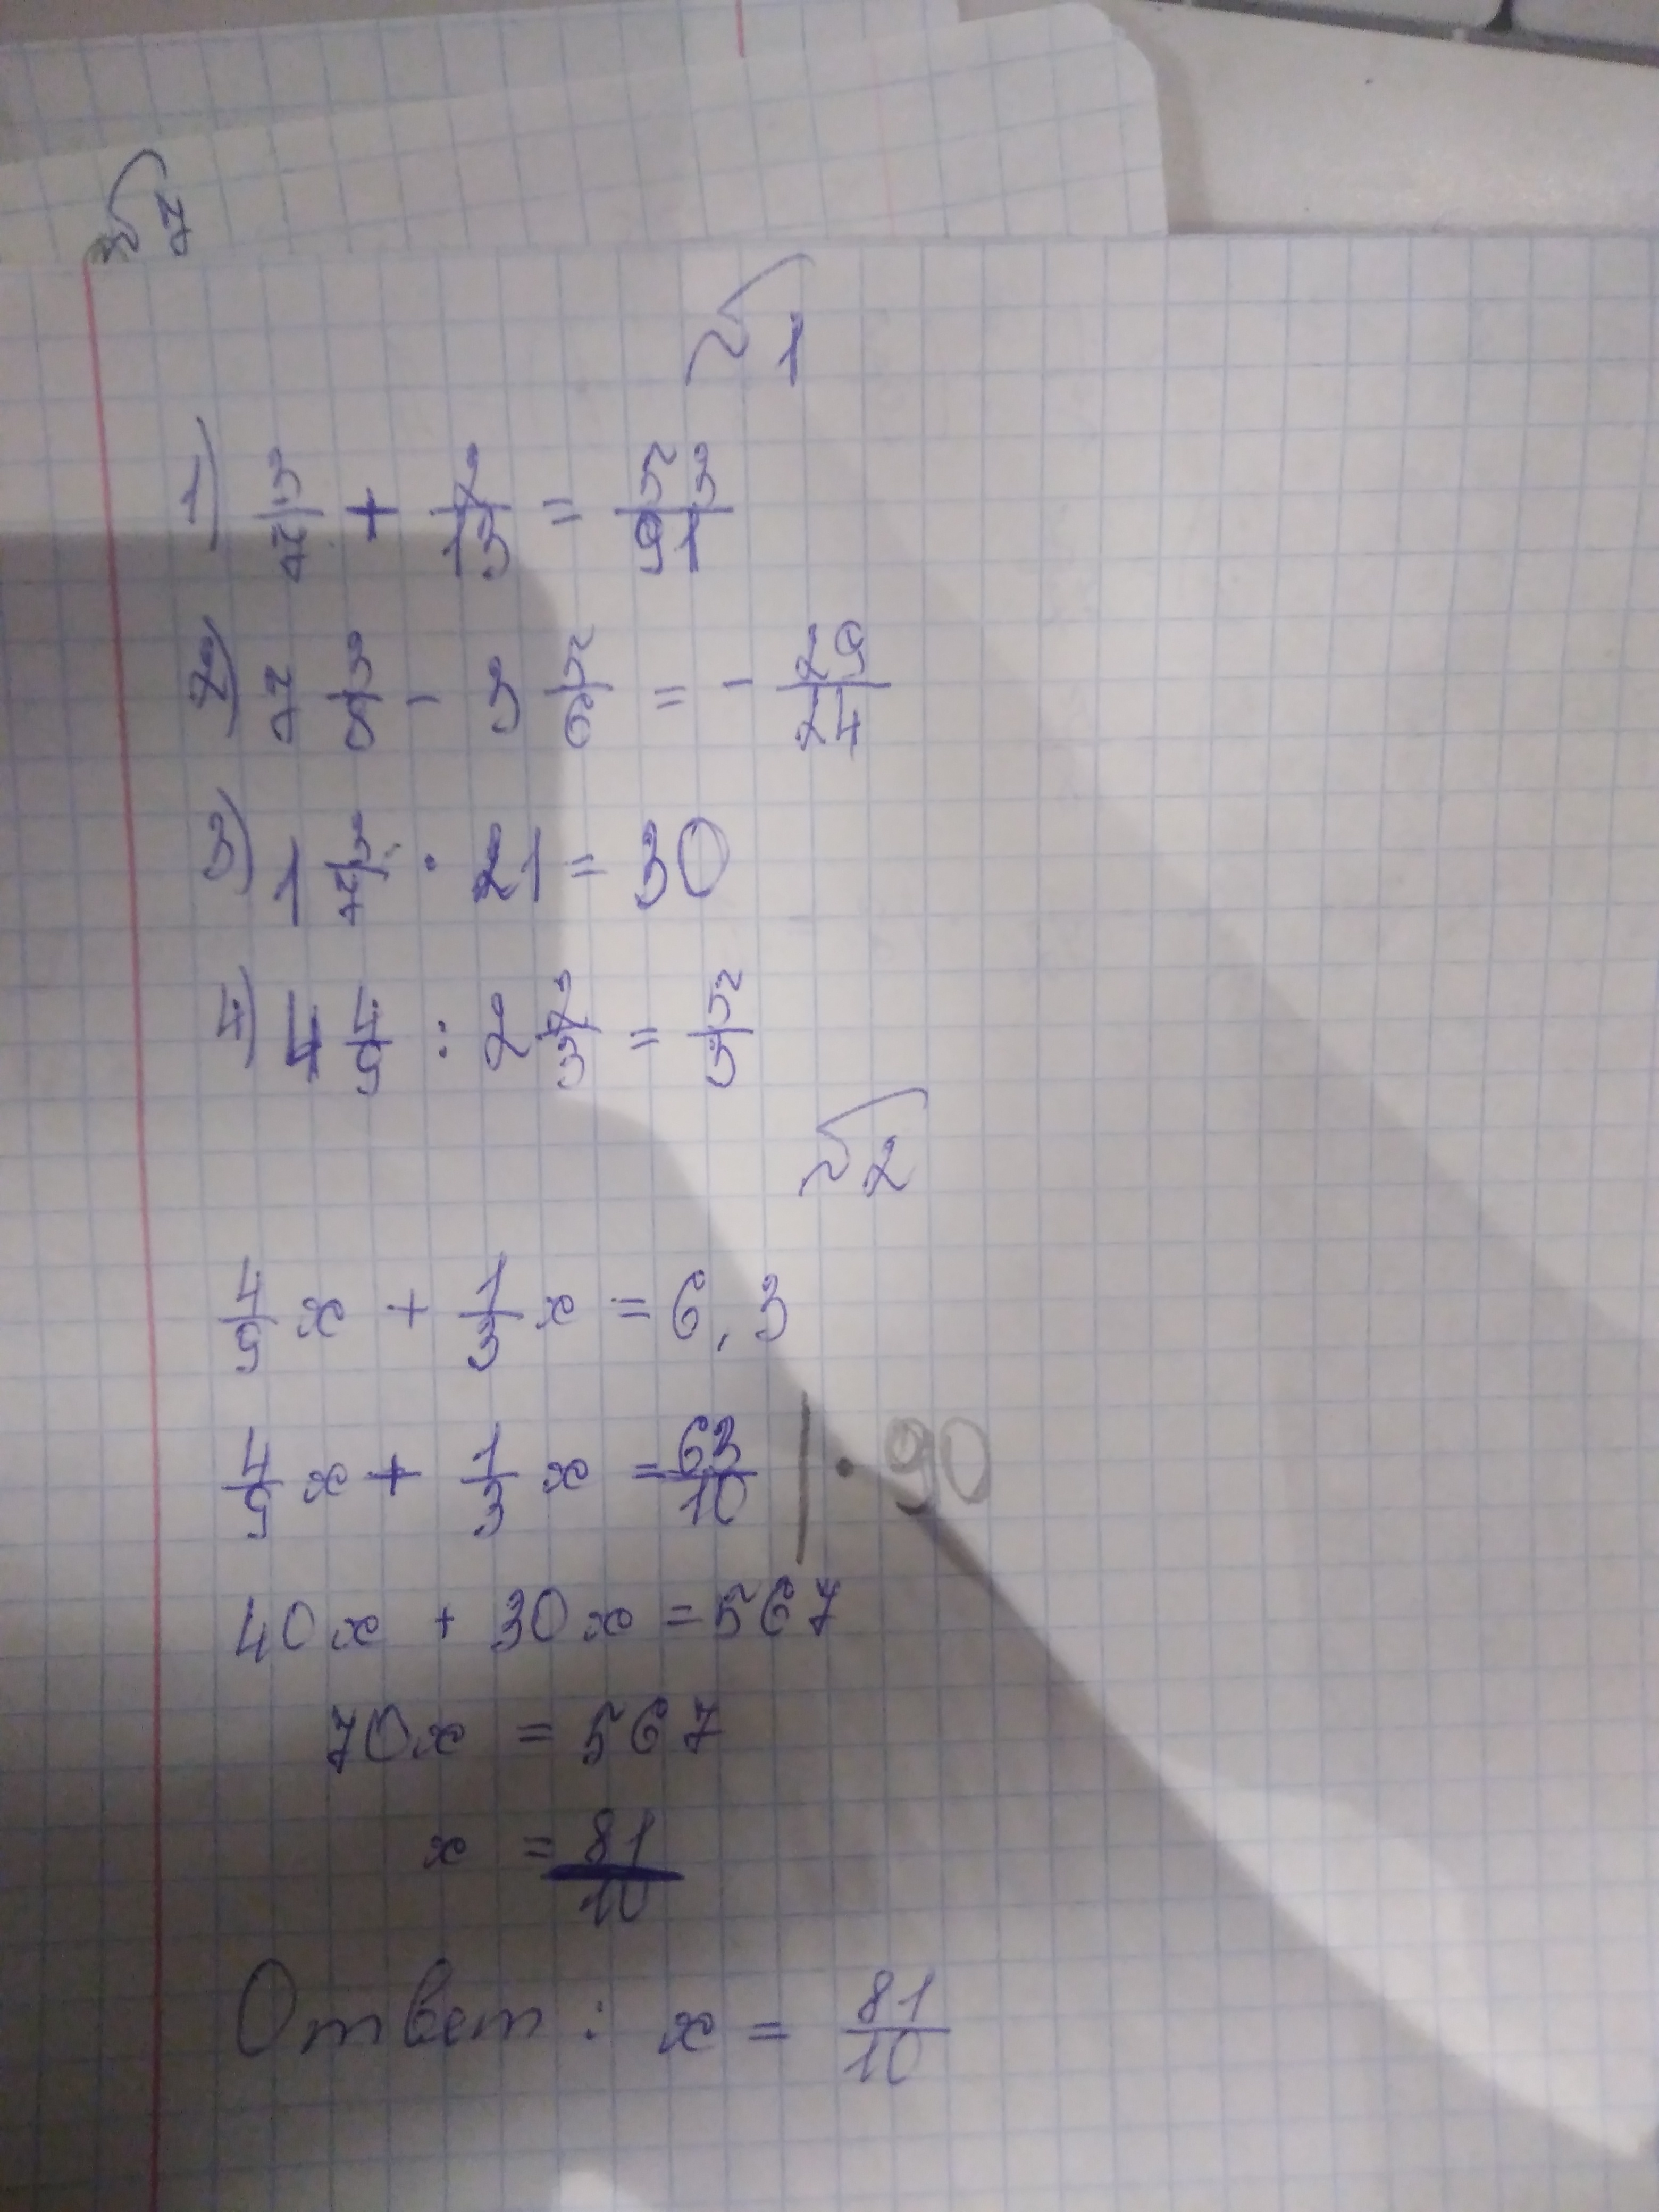 №7
№1
1) 3/7 + 2/13 = 53/91
2) 7 3/8 - 3 5/6 = - 29/24
3) 1 3/7 · 21 = 30
4) 4 4/9 : 2 2/3 = 5/3
№2
4/9 x + 1/3 x = 6,3
4/9 x + 1/3 x = 63/10 | · 90
40x + 30x = 567
70x = 567
x = 81/10
Ответ: x = 81/10